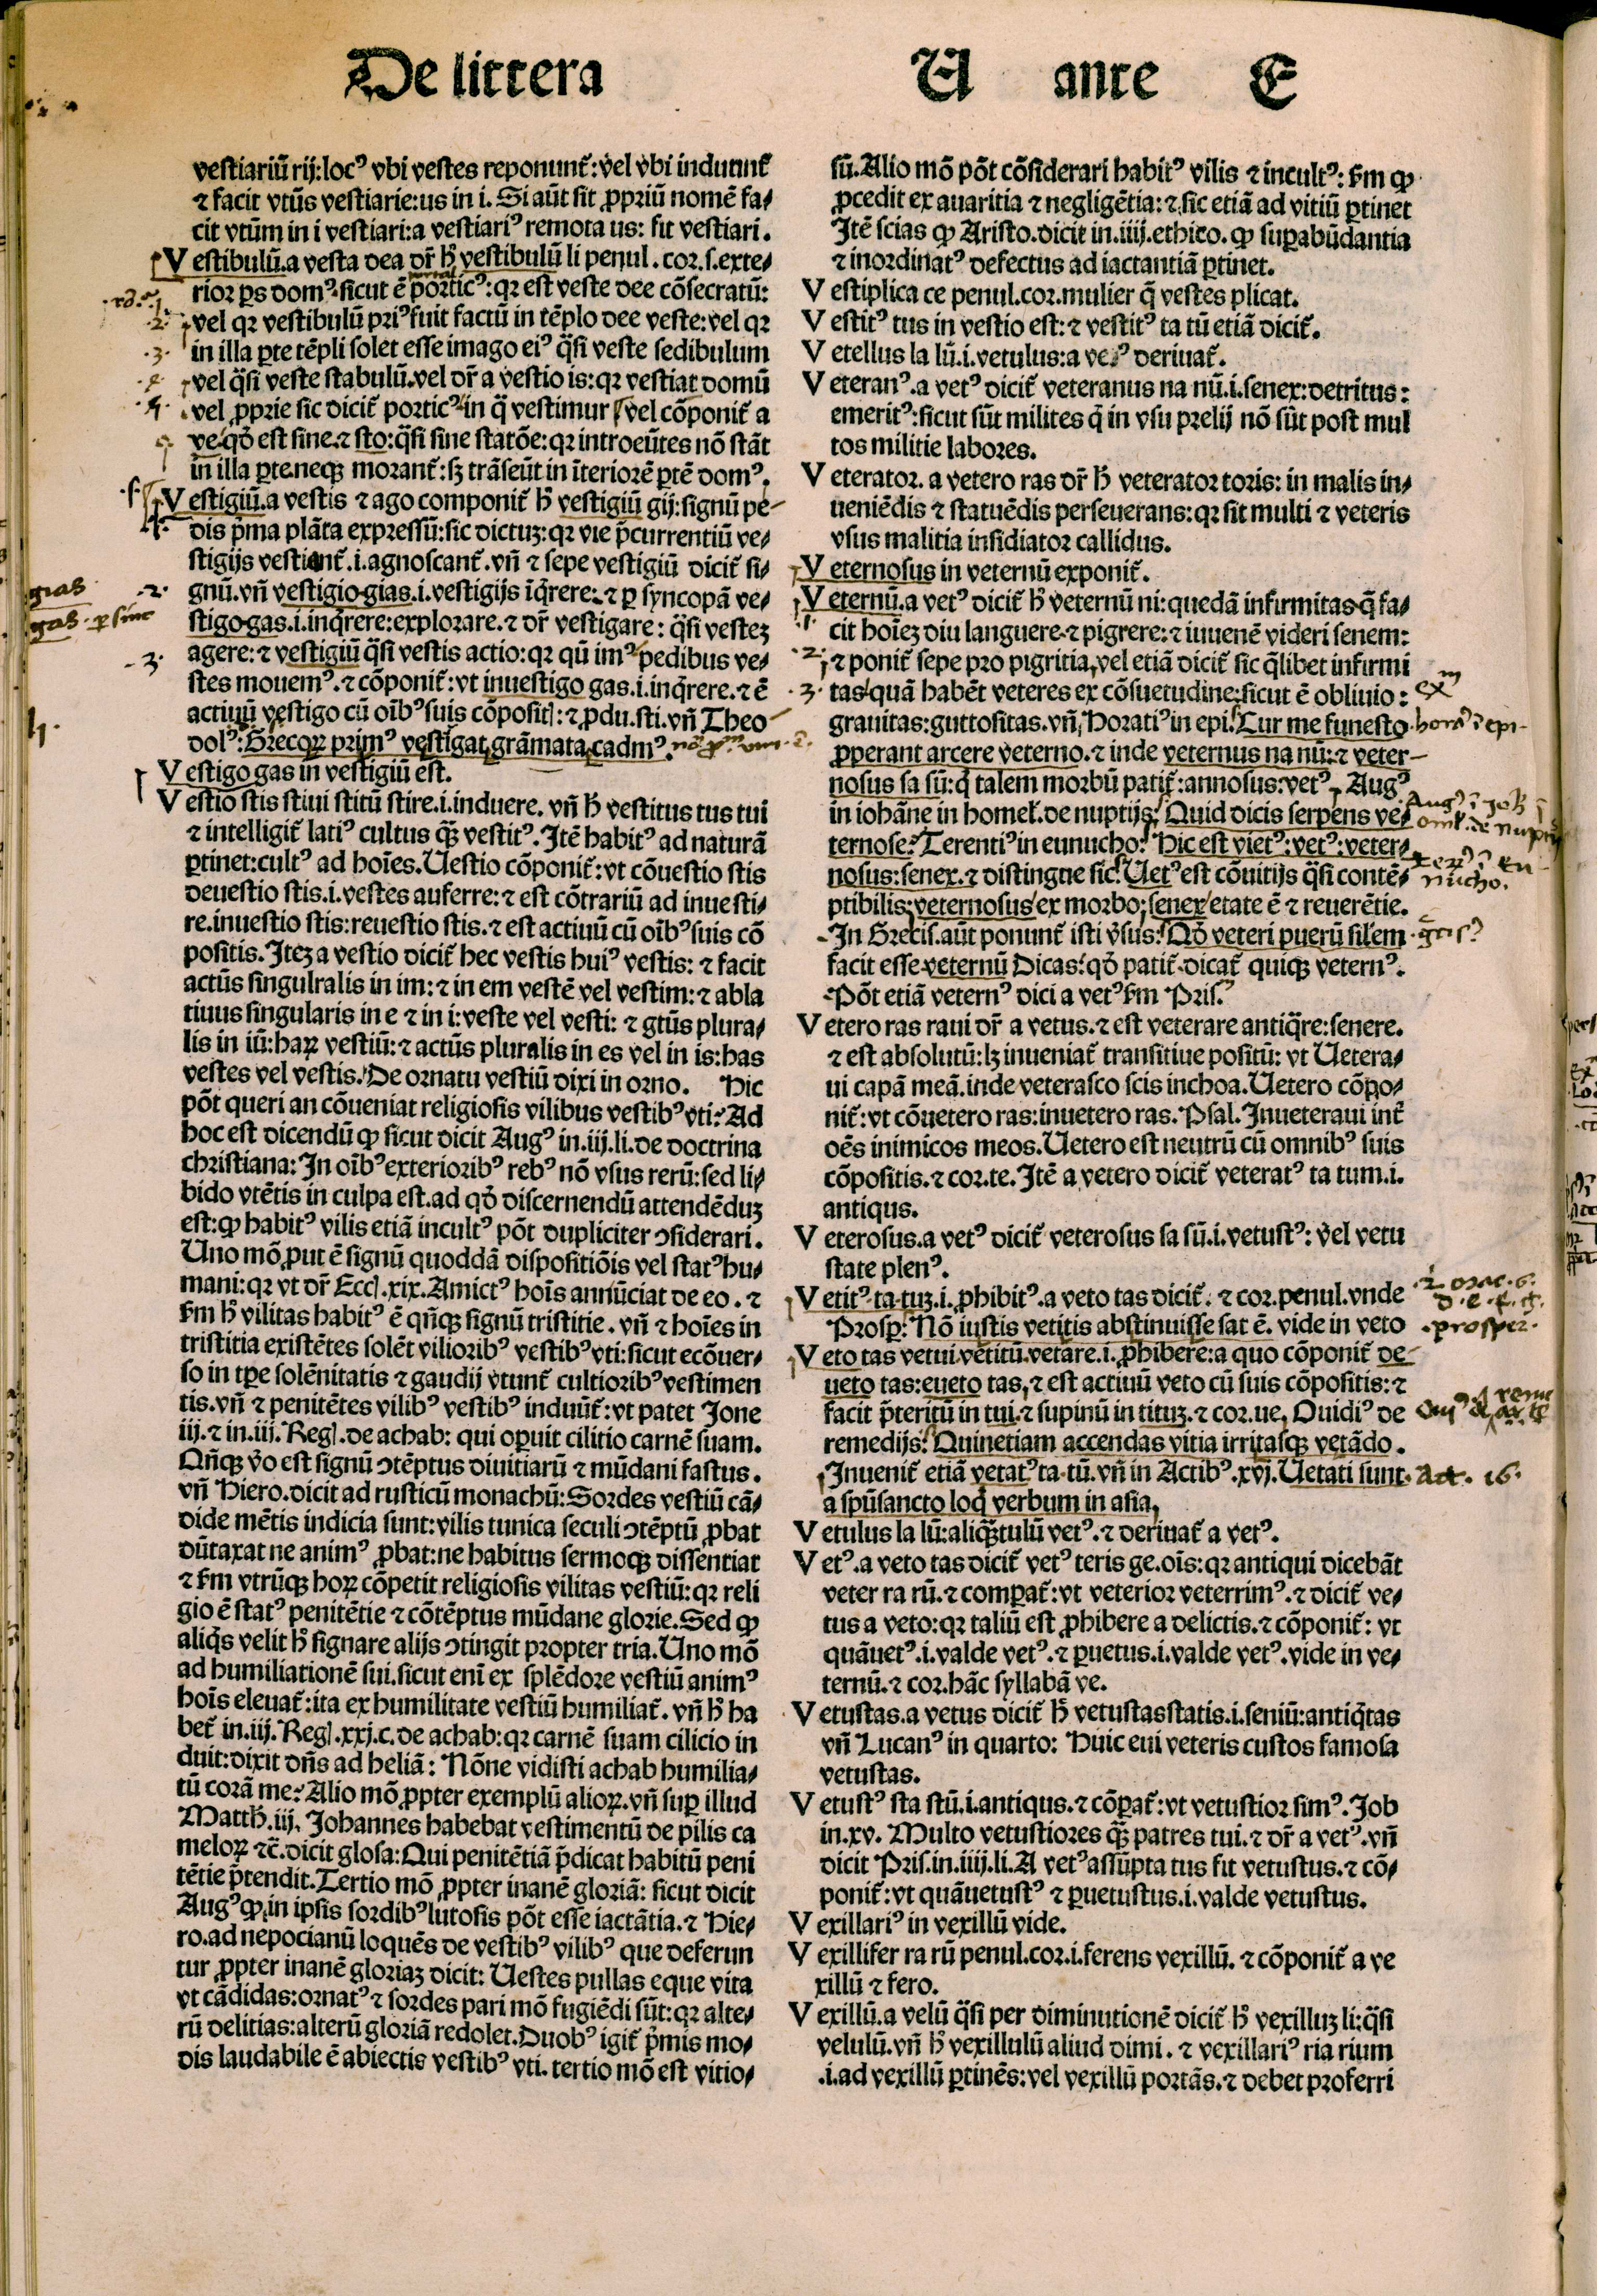 De littera
U ante E
vestiariũ rij: locꝰ vbi vestes reponunt̃: vel vbi induunt̃
⁊ facit vtũs vestiarie: us in i. Si aũt sit ꝓpriũ nomẽ fa⸗
cit vtũm in i vestiari: a vestiariꝰ remota us: fit vestiari.
Vestibulũ. a vesta dea dr̃ h̃ vestibulũ li penul. cor. s. exte⸗
rior ꝑs domꝰ sicut ẽ porticꝰ: qꝛ est veste dee cõsecratũ:
vel qꝛ vestibulũ priꝰ fuit factũ in tẽplo dee veste: vel qꝛ
in illa ꝑte tẽpli solet esse imago eiꝰ q̃si veste sedibulum
vel q̃si veste stabulũ. vel dr̃ a vestio is: qꝛ vestiat domũ
vel ꝓprie sic dicit̃ porticꝰ in q̃ vestimur vel cõponit̃ a
ve. qđ est sine. ⁊ sto: q̃si sine statõe: qꝛ introeũtes nõ stãt
in illa ꝑte. neqꝫ morant̃: sꝫ trãseũt in ĩteriorẽ ꝑtẽ domꝰ.
Vestigiũ. a vestis ⁊ ago componit̃ h̃ vestigiũ gij: signũ pe⸗
dis p̃ma plãta expressũ: sic dictuꝫ: qꝛ vie p̃currentiũ ve⸗
stigijs vestiant̃. i. agnoscant̃. vñ ⁊ sepe vestigiũ dicit̃ si⸗
gnũ. vñ vestigio gias. i. vestigijs ĩq̃rere. ⁊ ꝑ syncopã ve⸗
stigo gas. i. inq̃rere: explorare. ⁊ dr̃ vestigare: q̃si vesteꝫ
agere: ⁊ vestigiũ q̃si vestis actio: qꝛ qũ imꝰ pedibus ve⸗
stes mouemꝰ. ⁊ cõponit̃: vt inuestigo gas. i. inq̃rere. ⁊ ẽ
actiuũ vestigo cũ oĩbꝰ suis cõpositꝭ: ⁊ ꝓdu. sti. vñ Theo
dolꝰ: Grecoꝝ primꝰ vestigat grãmata cadmꝰ.
Vestigo gas in vestigiũ est.
Vestio stis stiui stitũ stire. i. induere. vñ h̃ vestitus tus tui
⁊ intelligit̃ latiꝰ cultus q̃ꝫ vestitꝰ. Itẽ habitꝰ ad naturã
ꝑtinet: cultꝰ ad hoĩes. Uestio cõponit̃: vt cõuestio stis
deuestio stis. i. vestes auferre: ⁊ est cõtrariũ ad inuesti⸗
re. inuestio stis: reuestio stis. ⁊ est actiuũ cũ oĩbꝰ suis cõ
positis. Iteꝫ a vestio dicit̃ hec vestis huiꝰ vestis: ⁊ facit
actũs singulralis in im: ⁊ in em vestẽ vel vestim: ⁊ abla
tiuus singularis in e ⁊ in i: veste vel vesti: ⁊ gtũs plura⸗
lis in iũ: haꝝ vestiũ: ⁊ actũs pluralis in es vel in is: has
vestes vel vestis. De ornatu vestiũ dixi in orno. Hic
põt queri an cõueniat religiosis vilibus vestibꝰ vti? Ad
hoc est dicendũ ꝙ sicut dicit Augꝰ in. iij. li. de doctrina
christiana: In oĩbꝰ exterioribꝰ rebꝰ nõ vsus rerũ: sed li⸗
bido vtẽtis in culpa est. ad qđ discernendũ attendẽduꝫ
est: ꝙ habitꝰ vilis etiã incultꝰ põt dupliciter ↄsiderari.
Uno mõ ꝓut ẽ signũ quoddã dispositiõis vel statꝰ hu⸗
mani: qꝛ vt dr̃ Eccꝉ. xix. Amictꝰ hoĩs annũciat de eo. ⁊
ẜm h̃ vilitas habitꝰ ẽ qñqꝫ signũ tristitie. vñ ⁊ hoĩes in
tristitia existẽtes solẽt vilioribꝰ vestibꝰ vti: sicut ecõuer⸗
so in tꝑe solẽnitatis ⁊ gaudij vtunt̃ cultioribꝰ vestimen
tis. vñ ⁊ penitẽtes vilibꝰ vestibꝰ induũt̃: vt patet Jone
iij. ⁊ in. iij. Regꝭ. de achab: qui oꝑuit cilitio carnẽ suam.
Qñqꝫ v̉o est signũ ↄtẽptus diuitiarũ ⁊ mũdani fastus.
vñ Hiero. dicit ad rusticũ monachũ: Sordes vestiũ cã⸗
dide mẽtis indicia sunt: vilis tunica seculi ↄtẽptũ ꝓbat
dũtaxat ne animꝰ ꝓbat: ne habitus sermoqꝫ dissentiat
⁊ ẜm vtrũqꝫ hoꝝ cõpetit religiosis vilitas vestiũ: qꝛ reli
gio ẽ statꝰ penitẽtie ⁊ cõtẽptus mũdane glorie. Sed ꝙ
aliq̃s velit h̃ signare alijs ↄtingit propter tria. Uno mõ
ad humiliationẽ sui. sicut enĩ ex splẽdore vestiũ animꝰ
hoĩs eleuat̃: ita ex humilitate vestiũ humiliat̃. vñ h̃ ha
bet̃ in. iij. Regꝭ. xxj. c. de achab: qꝛ carnẽ suam cilicio in
duit: dixit dñs ad heliã: Nõne vidisti achab humilia⸗
tũ corã me? Alio mõ ꝓpter exemplũ alioꝝ. vñ suꝑ illud
Matth̃. iij. Johannes habebat vestimentũ de pilis ca
meloꝝ ⁊c̃. dicit glosa: Qui penitẽtiã p̃dicat habitũ peni
tẽtie p̃tendit. Tertio mõ ꝓpter inanẽ gloriã: sicut dicit
Augꝰ ꝙ in ipsis sordibꝰ lutosis põt esse iactãtia. ⁊ Hie⸗
ro. ad nepocianũ loquẽs de vestibꝰ vilibꝰ que deferun
tur ꝓpter inanẽ gloriaꝫ dicit: Uestes pullas eque vita
vt cãdidas: ornatꝰ ⁊ sordes pari mõ fugiẽdi sũt: qꝛ alte⸗
rũ delitias: alterũ gloriã redolet. Duobꝰ igit̃ p̃mis mo⸗
dis laudabile ẽ abiectis vestibꝰ vti. tertio mõ est vitio⸗
sũ. Alio mõ põt cõsiderari habitꝰ vilis ⁊ incultꝰ: ẜm ꝙ
ꝓcedit ex auaritia ⁊ negligẽtia: ⁊ sic etiã ad vitiũ ꝑtinet
Itẽ scias ꝙ Aristo. dicit in. iiij. ethico. ꝙ suꝑabũdantia
⁊ inordinatꝰ defectus ad iactantiã ꝑtinet.
Vestiplica ce penul. cor. mulier q̃ vestes plicat.
Vestitꝰ tus in vestio est: ⁊ vestitꝰ ta tũ etiã dicit̃.
Vetellus la lũ. i. vetulus: a vetꝰ deriuat̃.
Veteranꝰ. a vetꝰ dicit̃ veteranus na nũ. i. senex: detritus:
emeritꝰ: sicut sũt milites q̃ in vsu prelij nõ sũt post mul
tos militie labores.
Veterator. a vetero ras dr̃ h̃ veterator toris: in malis in⸗
ueniẽdis ⁊ statuẽdis perseuerans: qꝛ sit multi ⁊ veteris
vsus malitia insidiator callidus.
Veternosus in veternũ exponit̃.
Veternũ. a vetꝰ dicit̃ h̃ veternũ ni: quedã infirmitas q̃ fa⸗
cit hoĩeꝫ diu languere ⁊ pigrere: ⁊ iuuenẽ videri senem:
⁊ ponit̃ sepe pro pigritia, vel etiã dicit̃ sic q̃libet infirmi
tas quã habẽt veteres ex cõsuetudine: sicut ẽ obliuio:
grauitas: guttositas. vñ Horatiꝰ in epi. Cur me funesto
ꝓperant arcere veterno. ⁊ inde veternus na nũ: ⁊ veter⸗
nosus sa sũ: q̃ talem morbũ patit̃: annosus: vetꝰ. Augꝰ
in iohãne in homeł. de nuptijs. Quid dicis serpens ve⸗
ternose? Terentiꝰ in eunucho? Hic est vietꝰ: vetꝰ: veter⸗
nosus: senex. ⁊ distingue sic: Uetꝰ est cõuitijs q̃si contẽ⸗
ptibilis: veternosus ex morbo: senex etate ẽ ⁊ reuerẽtie.
In Grecis. aũt ponunt̃ isti v̉sus: Qđ veteri puerũ silem
facit esse veternũ Dicas: qđ patit̃ dicat̃ quiqꝫ veternꝰ.
Põt etiã veternꝰ dici a vetꝰ ẜm Pris.
Vetero ras raui dr̃ a vetus. ⁊ est veterare antiq̃re: senere.
⁊ est absolutũ: lꝫ inueniat̃ transitiue positũ: vt Uetera⸗
ui capã meã. inde veterasco scis inchoa. Uetero cõpo⸗
nit̃: vt cõuetero ras: inuetero ras. Psal. Inueteraui int̃
oẽs inimicos meos. Uetero est neutrũ cũ omnibꝰ suis
cõpositis. ⁊ cor. te. Itẽ a vetero dicit̃ veteratꝰ ta tum. i.
antiqus.
Veterosus. a vetꝰ dicit̃ veterosus sa sũ. i. vetustꝰ: vel vetu
state plenꝰ.
Vetitꝰ ta tuꝫ. i. ꝓhibitꝰ. a veto tas dicit̃. ⁊ cor. penul. vnde
Prosꝑ: Nõ iustis vetitis abstinuisse sat ẽ. vide in veto
Veto tas vetui vetitũ vetare. i. ꝓhibere: a quo cõponit̃ de
ueto tas: eueto tas, ⁊ est actiuũ veto cũ suis cõpositis: ⁊
facit p̃teritũ in tui. ⁊ supinũ in tituꝫ. ⁊ cor. ue, Ouidiꝰ de
remedijs: Quinetiam accendas vitia irritasqꝫ vetãdo.
Inuenit̃ etiã vetatꝰ ta tũ. vñ in Actibꝰ. xvj. Uetati sunt
a spũsancto loq̃ verbum in asia,
Vetulus la lũ: aliq̃ꝫtulũ vetꝰ. ⁊ deriuat̃ a vetꝰ.
Vetꝰ. a veto tas dicit̃ vetꝰ teris ge. oĩs: qꝛ antiqui dicebãt
veter ra rũ. ⁊ comꝑat̃: vt veterior veterrimꝰ. ⁊ dicit̃ ve⸗
tus a veto: qꝛ taliũ est ꝓhibere a delictis. ⁊ cõponit̃: vt
quãuetꝰ. i. valde vetꝰ. ⁊ ꝑuetus. i. valde vetꝰ. vide in ve⸗
ternũ. ⁊ cor. hãc syllabã ve.
Vetustas. a vetus dicit̃ h̃ vetustas statis. i. seniũ: antiq̃tas
vñ Lucanꝰ in quarto: Huic eui veteris custos famosa
vetustas.
Vetustꝰ sta stũ. i. antiqus. ⁊ cõꝑat̃: vt vetustior simꝰ. Job
in. xv. Multo vetustiores q̃ꝫ patres tui. ⁊ dr̃ a vetꝰ. vñ
dicit Pris. in. iiij. li. A vetꝰ assũpta tus fit vetustus. ⁊ cõ⸗
ponit̃: vt quãuetustꝰ ⁊ ꝑuetustus. i. valde vetustus.
Vexillariꝰ in vexillũ vide.
Vexillifer ra rũ penul. cor. i. ferens vexillũ. ⁊ cõponit̃ a ve
xillũ ⁊ fero.
Vexillũ. a velũ q̃si per diminutionẽ dicit̃ h̃ vexilluꝫ li: q̃si
velulũ. vñ h̃ vexillulũ aliud dimi. ⁊ vexillariꝰ ria rium
.i. ad vexillũ ꝑtinẽs: vel vexillũ portãs. ⁊ debet proferri
.2.
.3.
gias
gas
-2.
-3.
h.
.2.
.3.
horaꝰ ĩ epi-
nucho.
prosper.
Act. 16.